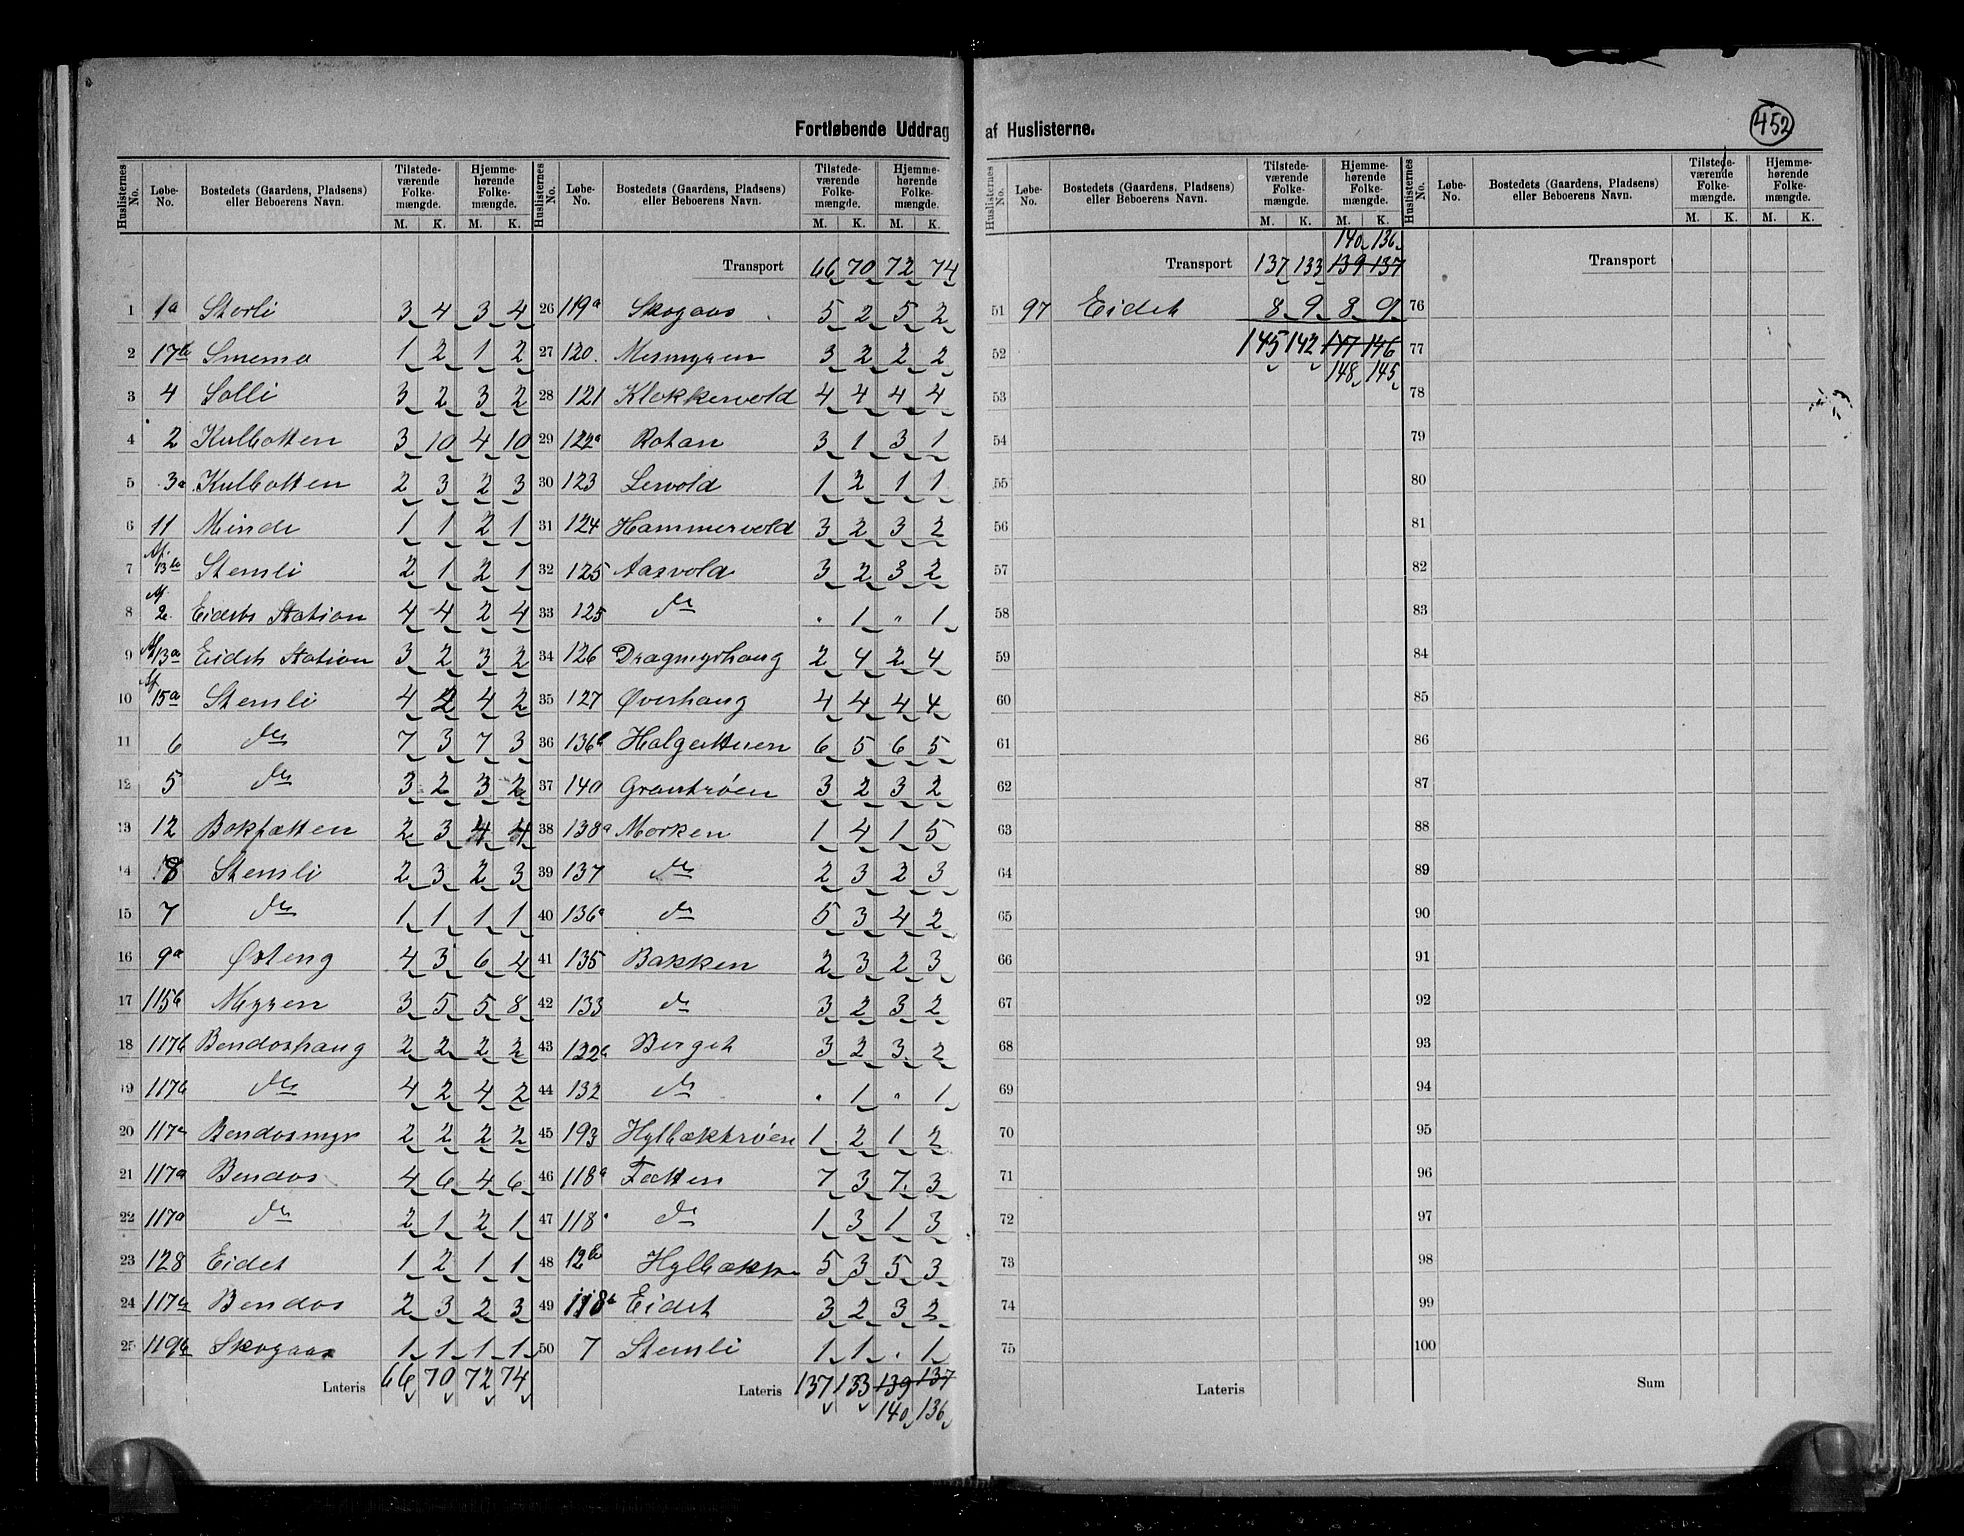 Fortløbende Uddrag af Huslisterne.
452
Huslisternes No. | Løbe-No. | Bostedets (Gaardens, Pladsens) eller Beboerens Navn. | Tilstedeværende Folkemængde. M. K. | Hjemmehørende Folkemængde. M. K.
1 1a Storli 3 4 3 4
2 17b Smemo 1 2 1 2
3 4 Solli 3 2 3 2
4 2 Kulbotten 3 10 4 10
5 3a Kulbotten 2 3 2 3
6 11 Minde 1 1 2 1
7 Af. 13b Stemli 2 1 2 1
8 Af 2. Eidets Station 4 4 2 4
9 Af 13a Eidets Station 3 2 3 2
10 Af 15a Stemli 4 2 4 2
11 6 do 7 3 7 3
12 5 do 3 2 3 2
13 12 Bokfatten 2 3 4 4
14 8 Stemli 2 3 2 3
15 7 do 1 1 1 1
16 9a Østeng 4 3 6 4
17 115b Myren 3 5 5 8
18 117b Bendoshaug 2 2 2 2
19 117b do 4 2 4 2
20 117a Bendosmyr 2 2 2 2
21 117a Bendos 4 6 4 6
22 117a do 2 1 2 1
23 128 Eidet 1 2 1 1
24 117a Bendos 2 3 2 3
25 119b Skogaas 1 1 1 1
Lateris 66 70 72 74
Huslisternes No. | Løbe-No. | Bostedets (Gaardens, Pladsens) eller Beboerens Navn. | Tilstedeværende Folkemængde. M. K. | Hjemmehørende Folkemængde. M. K.
Transport 66 70 72 74
26 119a Skogaas 5 2 5 2
27 120. Mosmyren 3 2 2 2
28 121 Klokkervold 4 4 4 4
29 122a Rotan 3 1 3 1
30 123 Lervold 1 2 1 1
31 124 Hammervold 3 2 3 2
32 125 Aasvold 3 2 3 2
33 125 do . 1 " 1
34 126 Dragmyrhaug 2 4 2 4
35 127 Øverhaug 4 4 4 4
36 136b Holgertuen 6 5 6 5
37 140 Grantrøen 3 2 3 2
38 138a Morken 1 4 1 5
39 137 do 2 3 2 3
40 136a do 5 3 4 2
41 135 Bakken 2 3 2 3
42 133 do 3 2 3 2
43 132b Berget 3 2 3 2
44 132 do . 1 " 1
45 193 Hylbæktrøen 1 2 1 2
46 118a Fatten 7 3 7 3
47 118 do 1 3 1 3
48 12b Hylbækk 5 3 5 3
49 118b Eidet 3 2 3 2
50 7 Stemli 1 1 . 1
Lateris 137 133 139 137
140 136
Huslisternes No. | Løbe-No. | Bostedets (Gaardens, Pladsens) eller Beboerens Navn. | Tilstedeværende Folkemængde. M. K. | Hjemmehørende Folkemængde. M. K.
140 136
Transport 137 133 139 137
51 97 Eidet 8 9 8 9
52 145 142 147 146
148 145
53
54
55
56
57
58
59
60
61
62
63
64
65
66
67
68
69
70
71
72
73
74
75
Lateris
Huslisternes No. | Løbe-No. | Bostedets (Gaardens, Pladsens) eller Beboerens Navn. | Tilstedeværende Folkemængde. M. K. | Hjemmehørende Folkemængde. M. K.
Transport
76
77
78
79
80
81
82
83
84
85
86
87
88
89
90
91
92
93
94
95
96
97
98
99
100
Sum